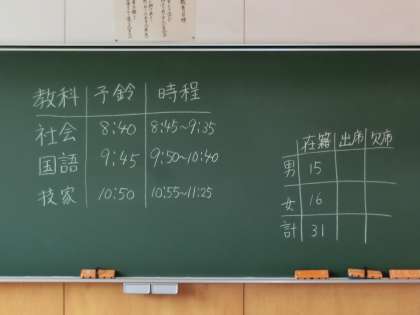 教科 予鈴 時程
社会 8:40 8:45~9:35
国語 9:45 9:50~10:40
技家 10:50 10:55~11:25
在籍 出席 欠席
男 15
女 16
計 31